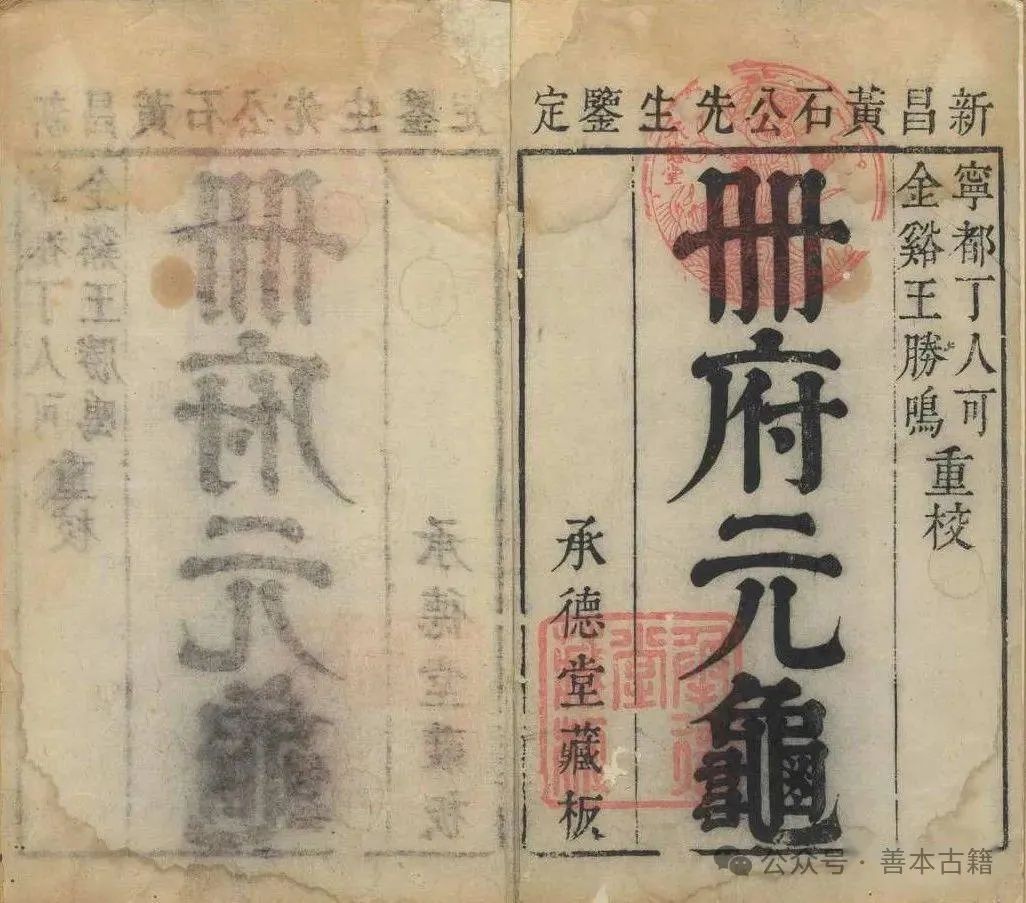 新昌黃石公先生鑒定
寧都丁人可
金谿王勝鳴
重校
冊府元龜
承德堂藏板
公众号·善本古籍